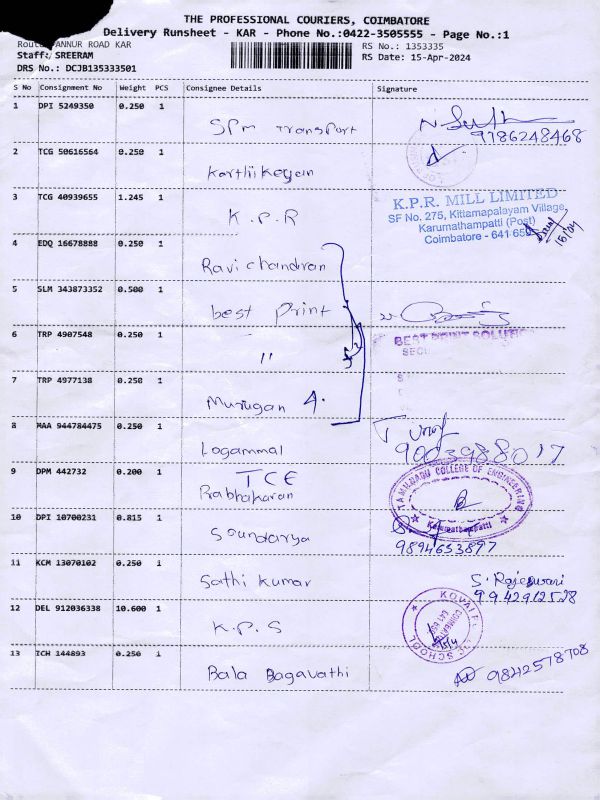 THE PROFESSIONAL COURIERS, COIMBATORE
Delivery Runsheet - KAR - Phone No.:0422-3505555 - Page No.:1
Route: ANNUR ROAD KAR
RS No.: 1353335
Staff: SREERAM
RS Date: 15-Apr-2024
DRS No.: DCJB135333501
S No Consignment No Weight PCS Consignee Details Signature
1 DPI 5249350 0.250 1 SPM Transport
9786248468
2 TCG 50616564 0.250 1 Karthikeyan
3 TCG 40939655 1.245 1 K.P.R
K.P.R. MILL LIMITED
SF No. 275, Kittamapalayam Village,
Karumathampatti (Post)
Coimbatore - 641 659
15/04
4 EDQ 16678888 0.250 1 Ravi chandran
5 SLM 343873352 0.500 1 best Print
6 TRP 4907548 0.250 1 "
BEST PRINT SOLUTION
7 TRP 4977138 0.250 1 Murugan A.
8 MAA 944784475 0.250 1 Logammal
9003988017
9 DPM 442732 0.200 1 TCE
Prabhakaran
TAMILNADU COLLEGE OF ENGINEERING
Karumathampatti
10 DPI 10700231 0.815 1 Soundarya
9894653897
11 KCM 13070102 0.250 1 Sathi kumar
S. Rajeswari
9942912528
12 DEL 912036338 10.600 1 K.P.S
13 TCH 144893 0.250 1 Bala Bagavathi
9842578708